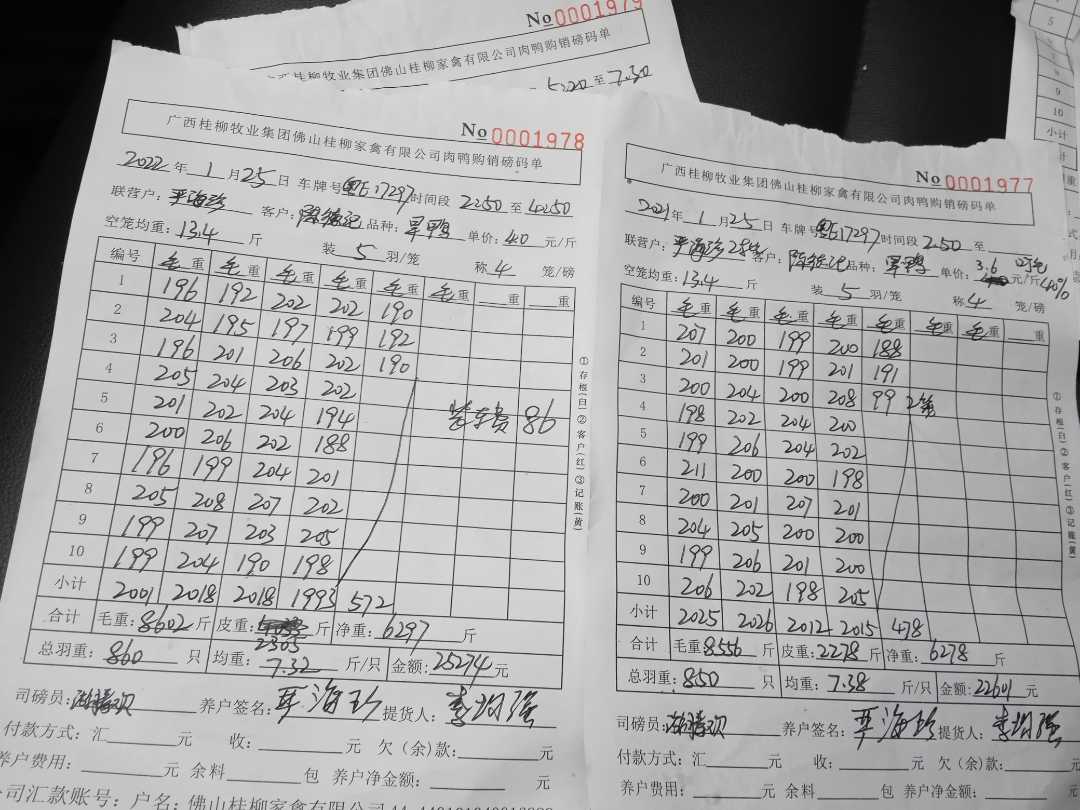 No 0001979
广西桂柳牧业集团佛山桂柳家禽有限公司肉鸭购销磅码单
5:20 至 7:30
No 0001978
广西桂柳牧业集团佛山桂柳家禽有限公司肉鸭购销磅码单
2022 年 1 月 25 日 车牌号 粤E:17297 时间段 2:50 至 4:50
联营户: 覃海珍 客户: 品种: 单价: 4.0 元/斤
空笼均重: 13.4 斤 装 5 羽/笼 称 4 笼/磅
编号 毛重 毛重 毛重 毛重 毛重 毛重 重 重
1 196 192 202 202 190
2 204 195 197 199 192
3 196 201 206 202 190
4 205 204 203 202
5 201 202 204 194 装车费 86
6 200 206 202 188
7 196 199 204 201
8 205 208 207 202
9 199 207 203 205
10 199 204 190 198
小计 2001 2018 2018 1993 572
合计 毛重: 8602 斤 皮重: 2305 斤 净重: 6297 斤
总羽重: 860 只 均重: 7.32 斤/只 金额: 25274 元
司磅员: 养户签名: 覃海珍 提货人: 李均强
付款方式: 汇 元 收: 元 欠(余)款: 元
养户费用: 元 余料 包 养户净金额: 元
公司汇款账号: 户名: 佛山桂柳家禽有限公司
①存根(白)②客户(红)③记账(黄)
No 0001977
广西桂柳牧业集团佛山桂柳家禽有限公司肉鸭购销磅码单
2021 年 1 月 25 日 车牌号 粤E:17297 时间段 2:50 至
联营户: 覃海珍 客户: 品种: 单价: 3.6 元/斤 40%
空笼均重: 13.4 斤 装 5 羽/笼 称 4 笼/磅
编号 毛重 毛重 毛重 毛重 毛重 毛重 毛重 重
1 207 200 199 200 188
2 201 200 199 201 191
3 200 204 200 208 99 2笼
4 198 202 204 200
5 199 206 204 202
6 211 200 200 198
7 200 201 207 201
8 204 205 200 200
9 199 206 201 200
10 206 202 198 205
小计 2025 2026 2012 2015 478
合计 毛重: 8556 斤 皮重: 2278 斤 净重: 6278 斤
总羽重: 850 只 均重: 7.38 斤/只 金额: 22601 元
司磅员: 养户签名: 覃海珍 提货人: 李均强
付款方式: 汇 元 收: 元 欠(余)款: 元
养户费用: 元 余料 包 养户净金额: 元
①存根(白)②客户(红)③记账(黄)
5
9
10
小计